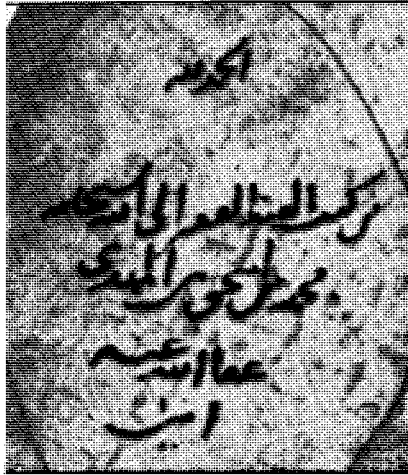 الحمد لله
من كتب العبد الفقير الى الله سبحانه
محمد بن اسحق بن المهدي
عفا الله عنهم
امين